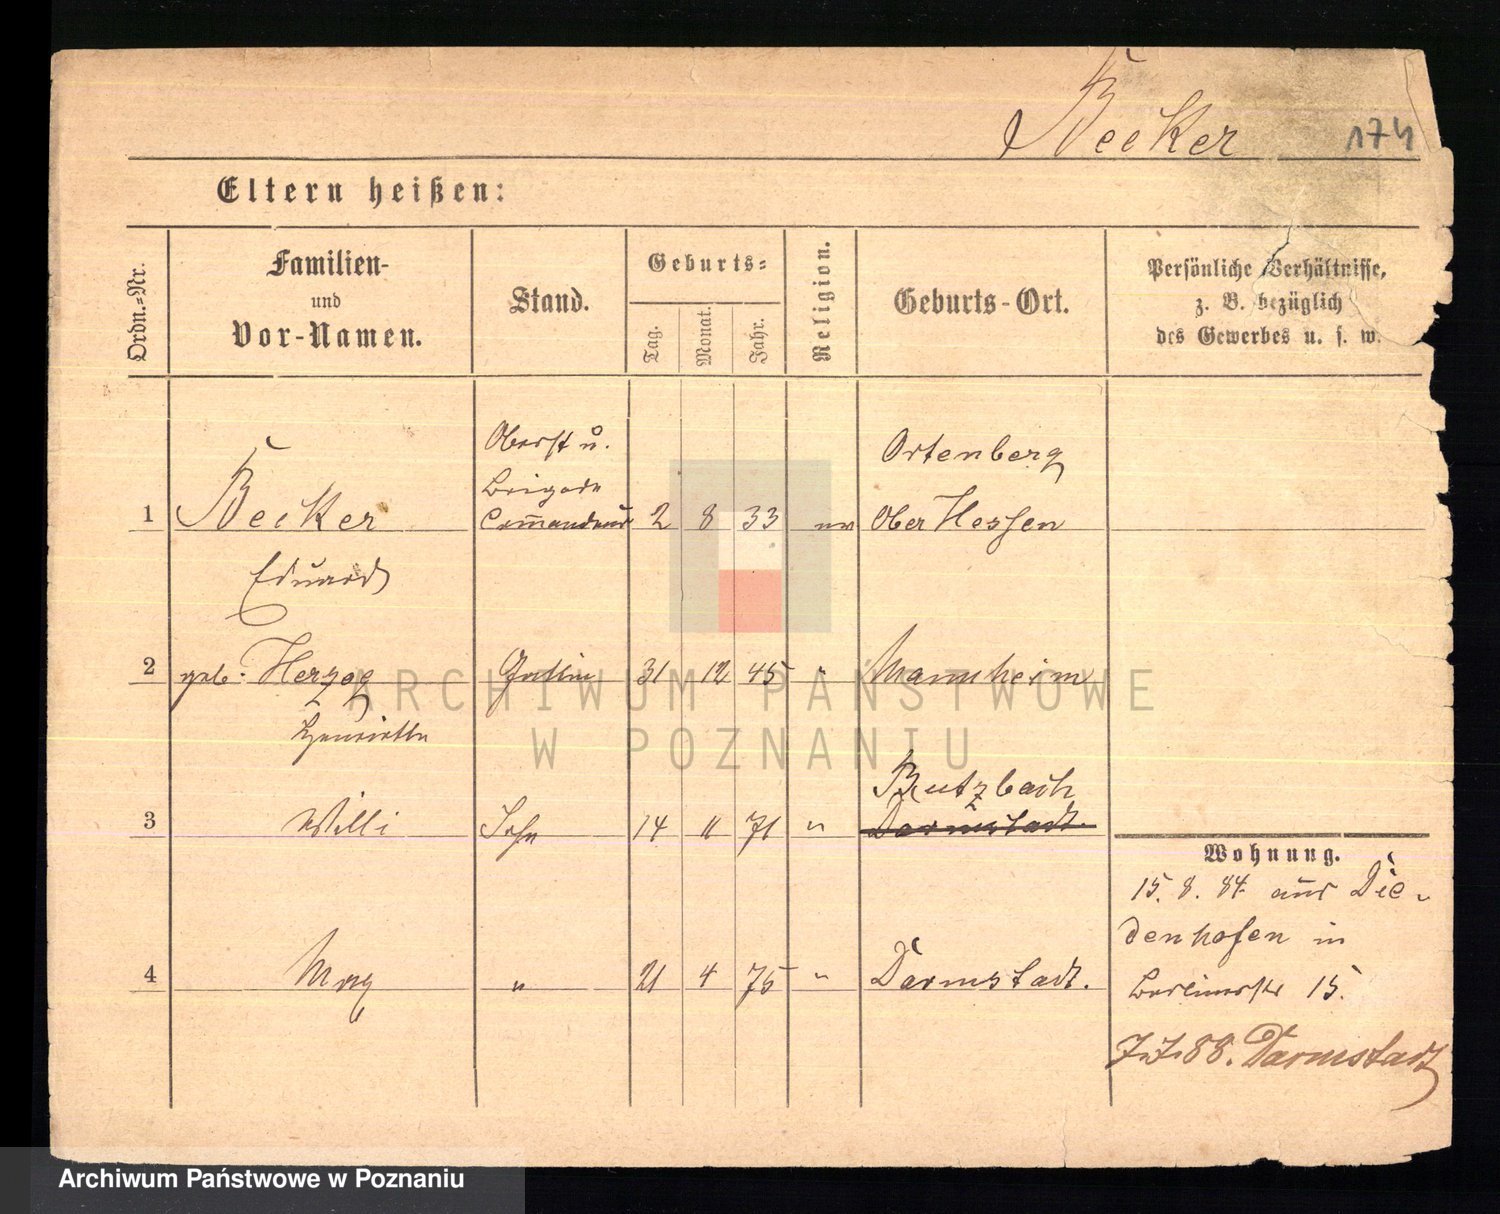 Becker 174
Eltern heißen:
Ordn.=Nr.
Familien-
und
Vor-Namen.
Stand.
Geburts=
Tag.
Monat.
Jahr.
Religion.
Geburts-Ort.
Persönliche Verhältnisse,
z. B. bezüglich
des Gewerbes u. s. w.
Oberst u.
Brigade
1 Becker Commandeur 2 8 33 ev
Ortenberg
Ober Hessen
Eduard
2 geb. Herzog Gattin 31 12 45 " Mannheim
Henriette
Butzbach
3 Willi Sohn 14 11 71 " Darmstadt.
4 Max " 21 4 75 " Darmstadt.
Wohnung.
15. 8. 84. aus Die-
denhofen in
Berlinerstr 15.
7.7.88. Darmstadt
ARCHIWUM PAŃSTWOWE
W POZNANIU
Archiwum Państwowe w Poznaniu